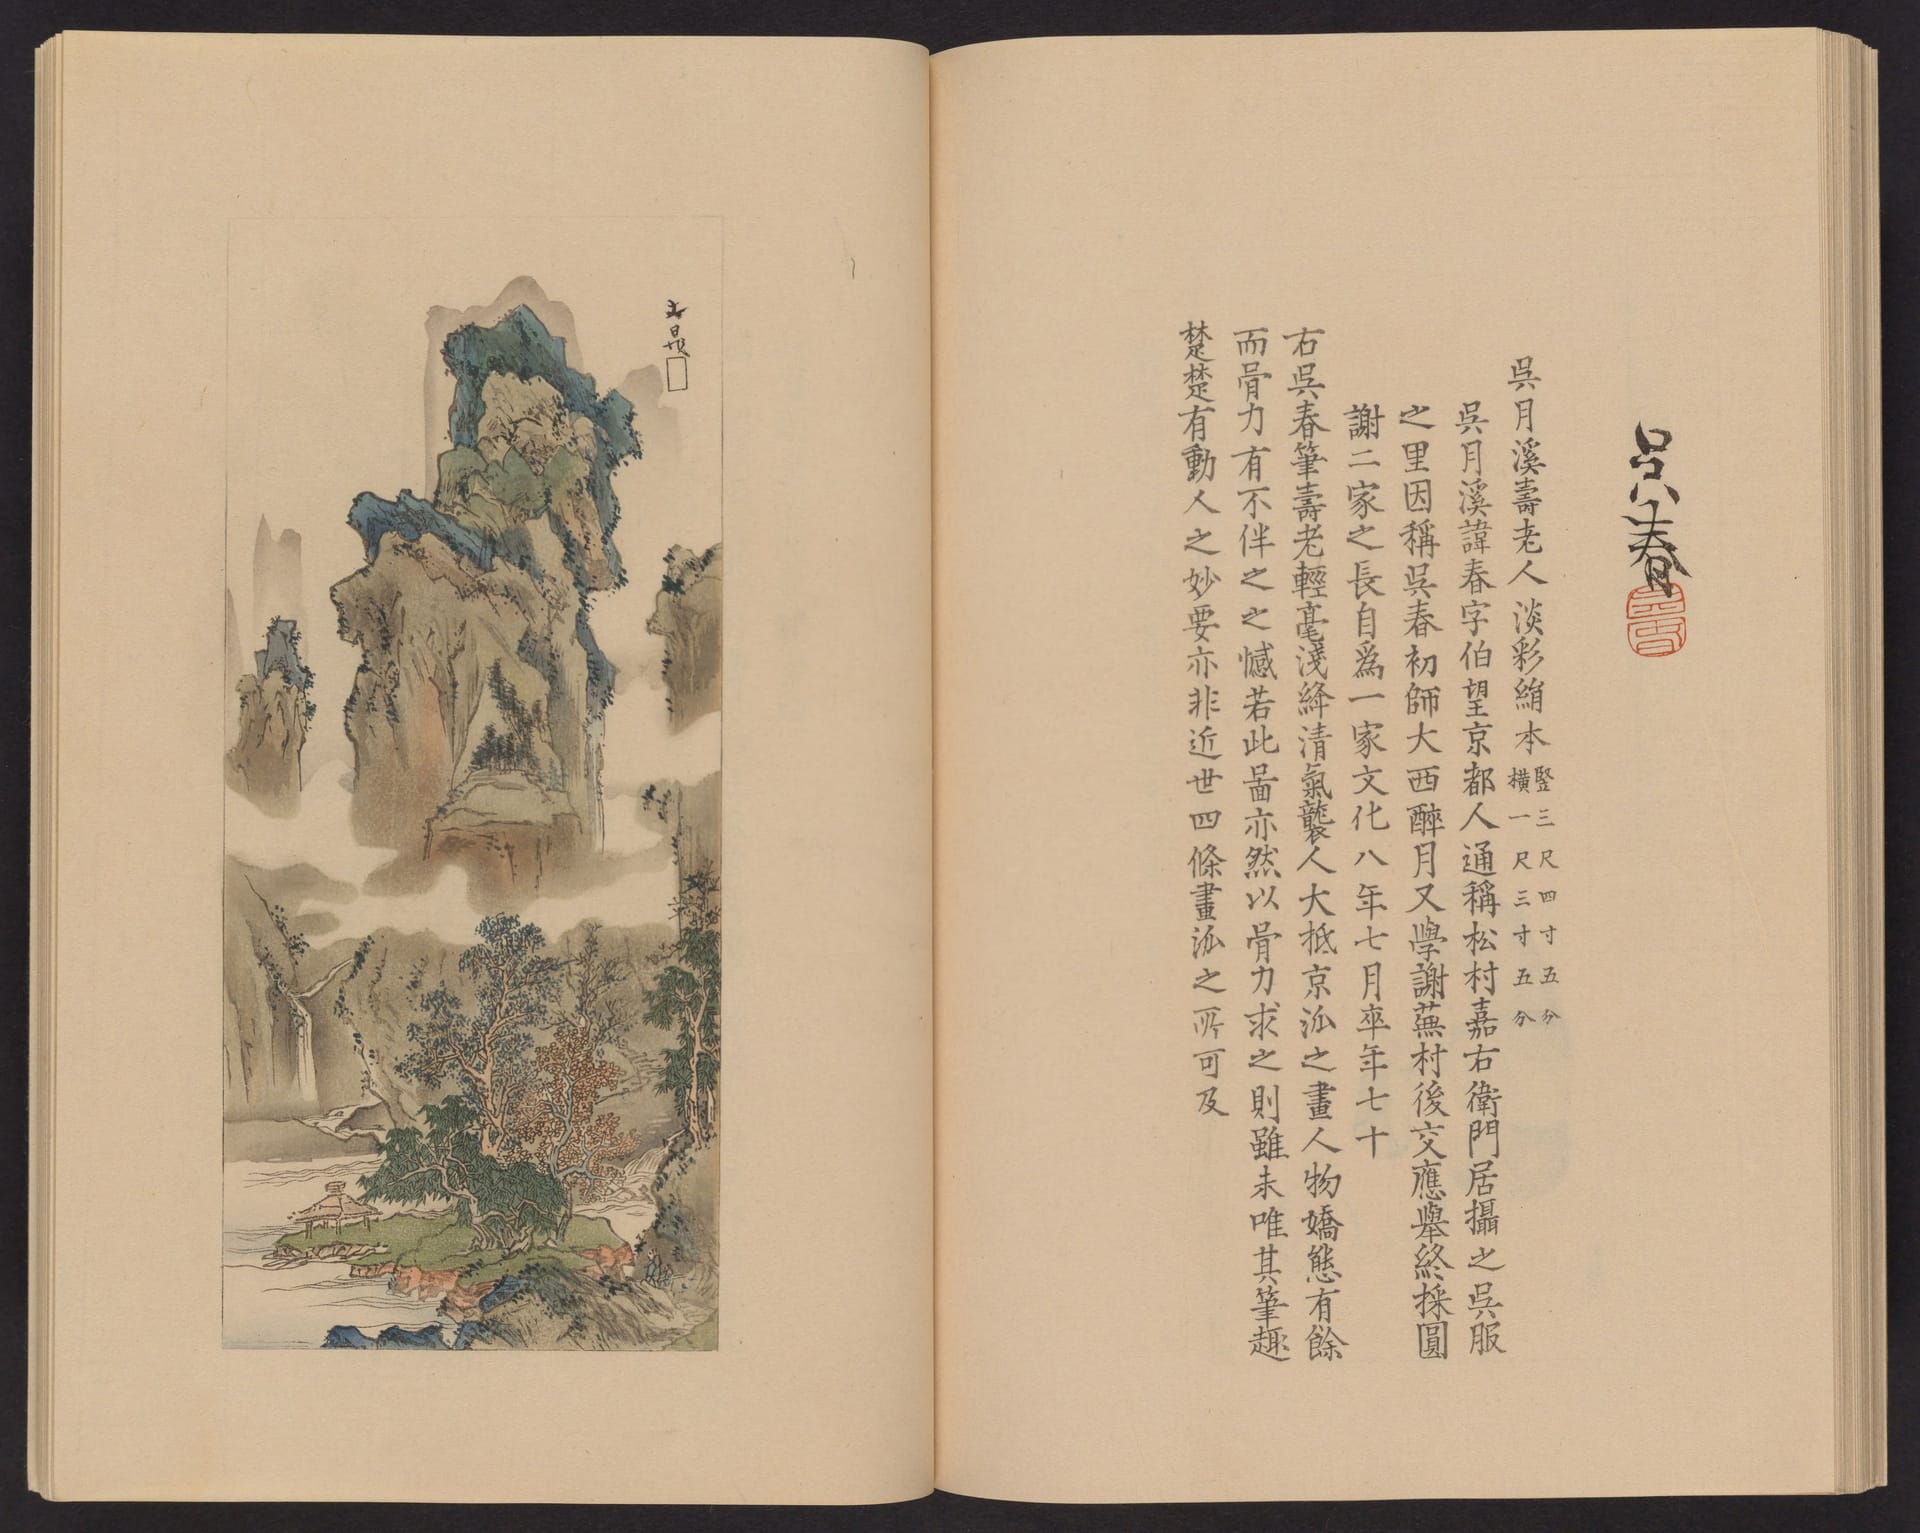 吳春
吳月溪壽老人淡彩絹本竪三尺四寸五分
橫一尺三寸五分
吳月溪諱春字伯望京都人通稱松村嘉右衛門居攝之吳服
之里因稱吳春初師大西醉月又學謝蕪村後交應舉終採圓
謝二家之長自爲一家文化八年七月卒年七十
右吳春筆壽老輕毫淺絳清氣襲人大抵京派之畫人物嬌態有餘
而骨力有不伴之之憾若此啚亦然以骨力求之則雖未唯其筆趣
楚楚有動人之妙要亦非近世四條畫派之所可及
文晁